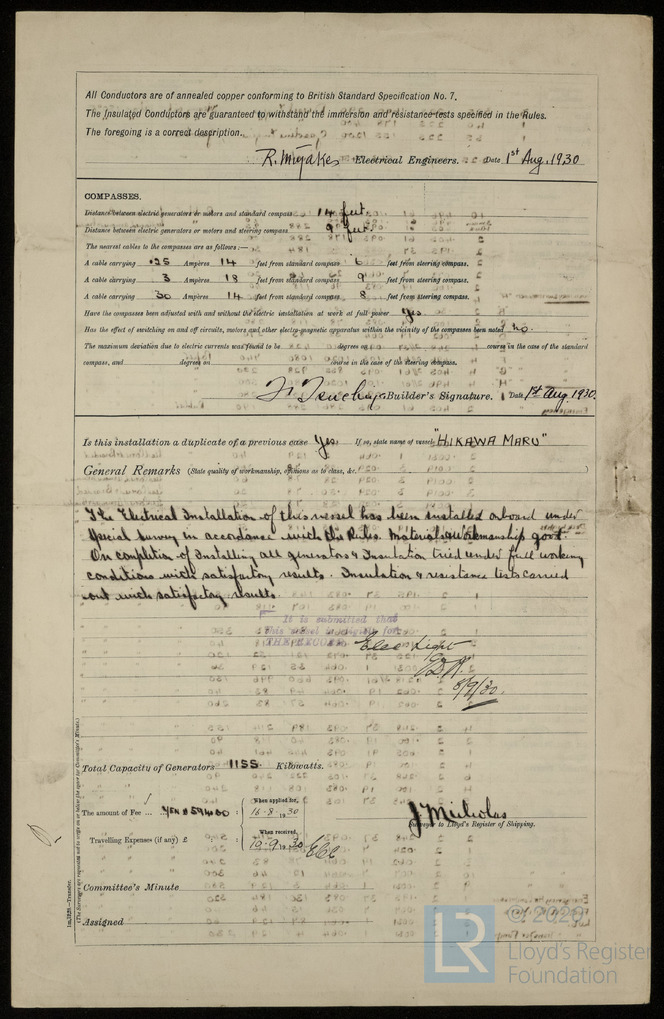 All Conductors are of annealed copper conforming to British Standard Specification No. 7.
The Insulated Conductors are guaranteed to withstand the immersion and resistance tests specified in the Rules.
The foregoing is a correct description.
R. Miyake Electrical Engineers. Date 1st Aug. 1930
COMPASSES.
Distance between electric generators or motors and standard compass 14 feet
Distance between electric generators or motors and steering compass 9 feet
The nearest cables to the compasses are as follows :—
A cable carrying .25 Ampères 14 feet from standard compass 6 feet from steering compass.
A cable carrying 3 Ampères 18 feet from standard compass 9 feet from steering compass.
A cable carrying 30 Ampères 14 feet from standard compass 8 feet from steering compass.
Have the compasses been adjusted with and without the electric installation at work at full power Yes
Has the effect of switching on and off circuits, motors and other electro-magnetic apparatus within the vicinity of the compasses been noted No.
The maximum deviation due to electric currents was found to be degrees on course in the case of the standard
compass, and degrees on course in the case of the steering compass.
Builder's Signature. Date 1st Aug. 1930.
Is this installation a duplicate of a previous case Yes If so, state name of vessel "HIKAWA MARU"
General Remarks (State quality of workmanship, opinions as to class, &c.
The Electrical Installation of this vessel has been installed onboard under
Special Survey in accordance with the Rules. Materials & Workmanship good.
On completion of Installing all generators & Insulation tried under full working
conditions with satisfactory results. Insulation & resistance tests carried
out with satisfactory results.
It is submitted that
this vessel is eligible for
THE RECORD. Elec Light
8/9/30.
Total Capacity of Generators 1155 Kilowatts.
The amount of Fee ... YEN 594.00 : When applied for, 16-8-1930
Travelling Expenses (if any) £ : When received, 10.9.1930
J. Nicholas
Surveyor to Lloyd's Register of Shipping.
Committee's Minute
Assigned
1m.3.29.—Transfer.
(The Surveyors are requested not to write on or below the space for Committee's Minute.)
© 2020
LR
Lloyd's Register
Foundation